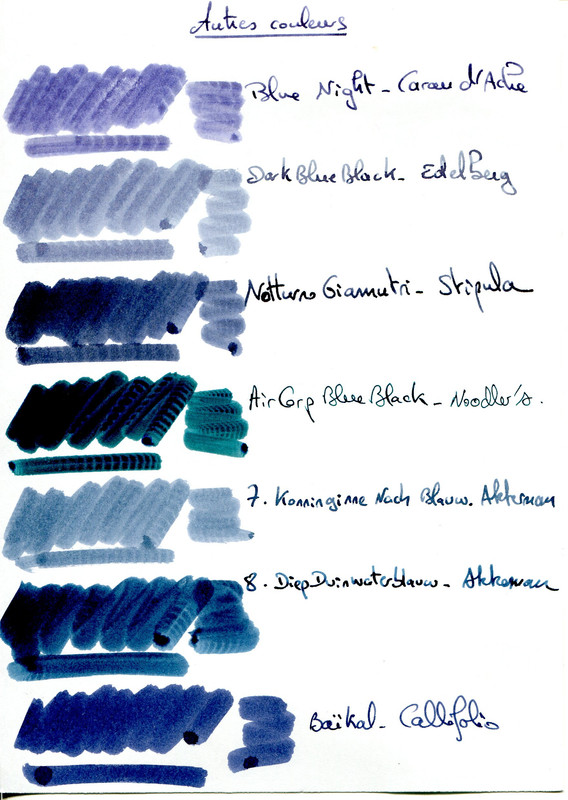 Autres couleurs
Blue Night - Caran d'Ache
Dark Blue Black - Edelberg
Notturno Giamutri - Stipula
Air Corp Blue Black - Noodler's.
7. Konninginne Nach Blauw. Akkerman
8. Diep Duinwaterblauw - Akkerman
Baïkal - Callifolio